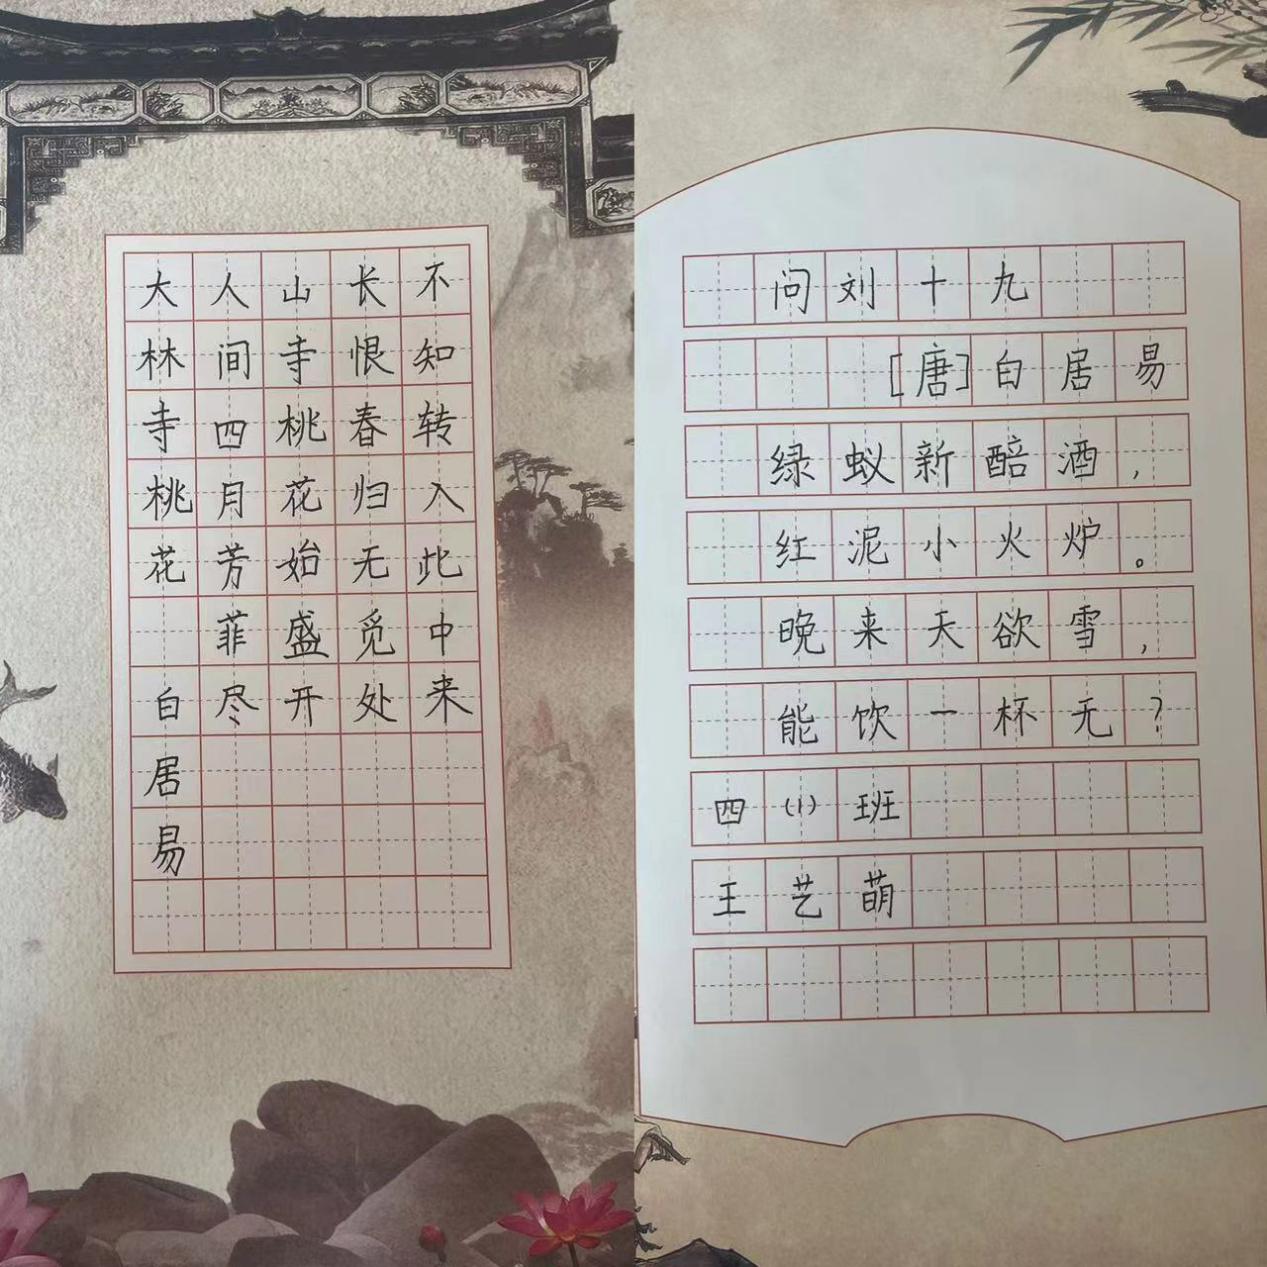 大林寺桃花 白居易
人间四月芳菲尽
山寺桃花始盛开
长恨春归无觅处
不知转入此中来
问刘十九
[唐]白居易
绿蚁新醅酒，
红泥小火炉。
晚来天欲雪，
能饮一杯无？
四(1)班
王艺萌